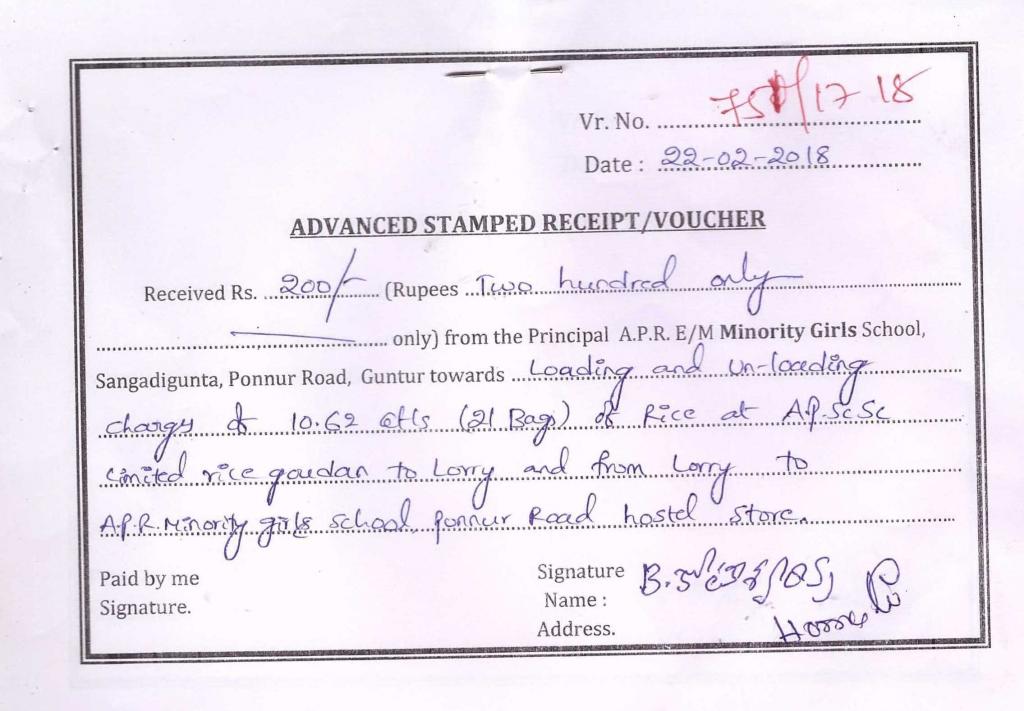 Vr. No. /17-18
Date : 22-02-2018
ADVANCED STAMPED RECEIPT/VOUCHER
Received Rs. 200/- (Rupees Two hundred only
only) from the Principal A.P.R. E/M Minority Girls School,
Sangadigunta, Ponnur Road, Guntur towards Loading and un-loading
chargy of 10.62 Qtls (21 Bags) of Rice at A.P.Sc.Sc
Limited rice goudan to Lorry and from Lorry to
A.P.R. Minority girls school ponnur Road hostel store.
Paid by me
Signature.
Signature B.
Name :
Address.